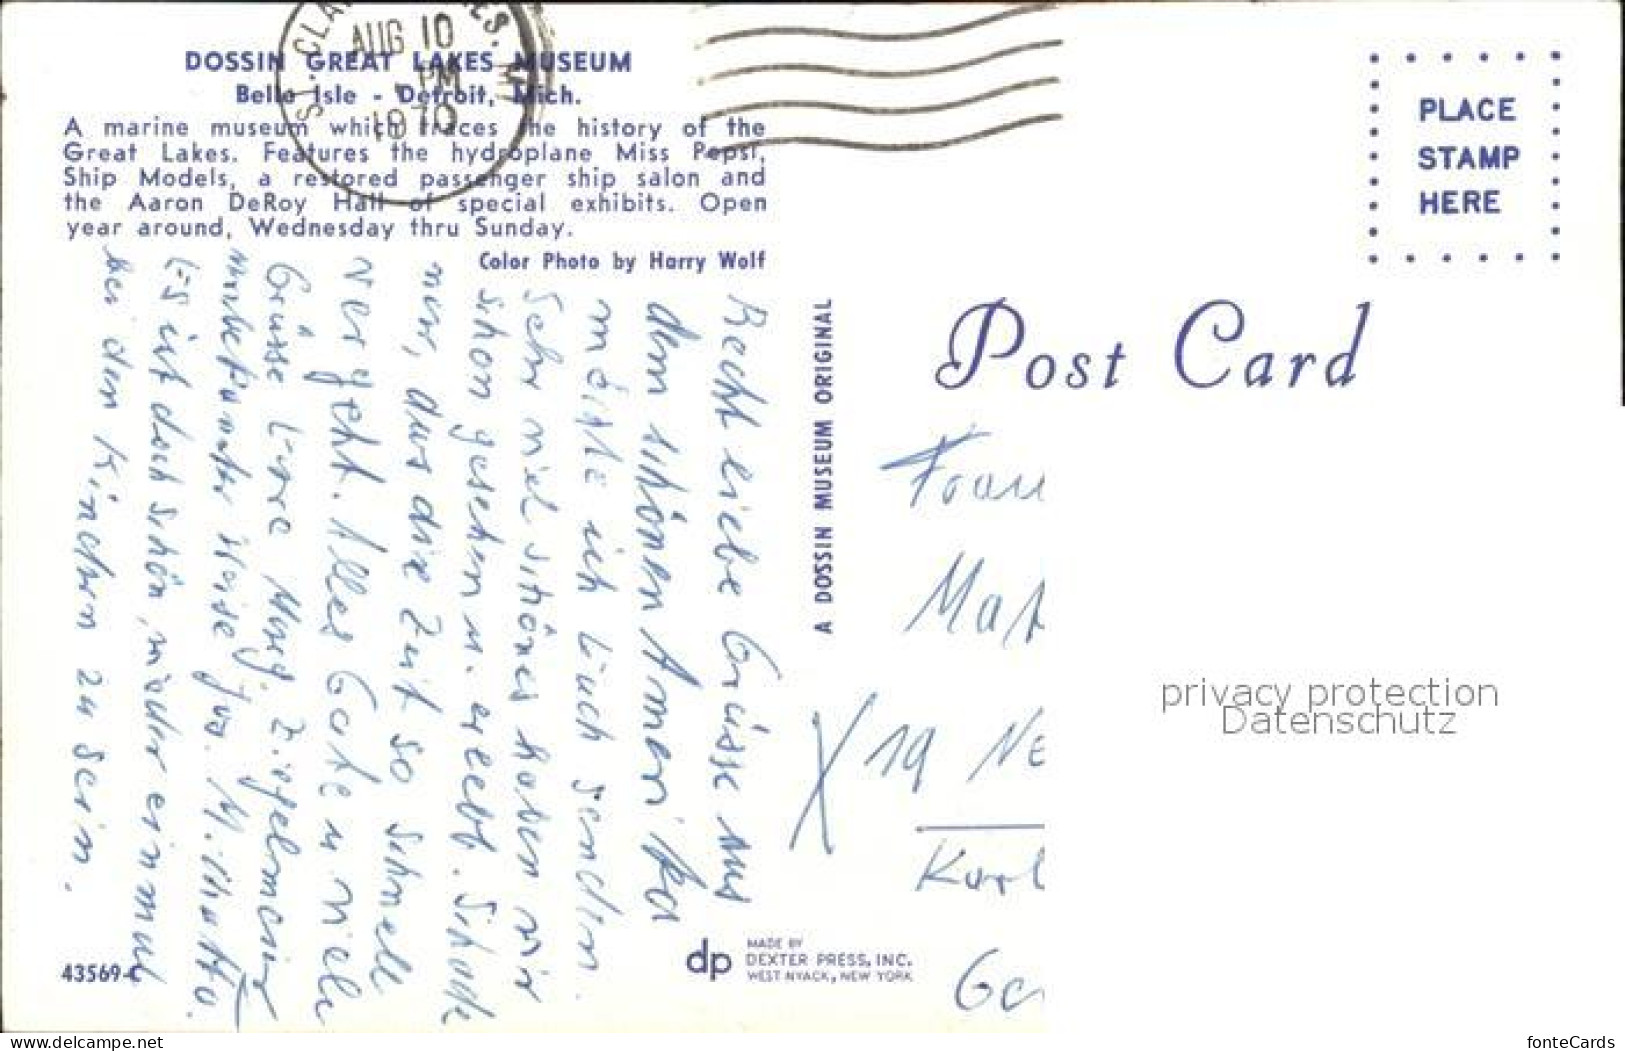 ST. CLAIR
AUG 10
PM
1970
DOSSIN GREAT LAKES MUSEUM
Belle Isle - Detroit, Mich.
A marine museum which traces the history of the
Great Lakes. Features the hydroplane Miss Pepsi,
Ship Models, a restored passenger ship salon and
the Aaron DeRoy Hall of special exhibits. Open
year around, Wednesday thru Sunday.
Color Photo by Harry Wolf
Recht liebe Grüsse aus
dem schönen Amerika
möchte ich Euch senden.
Sehr viel schönes haben wir
schon gesehen u. erlebt. Schade
nur, dass die Zeit so schnell
vergeht. Alles Gute u. viele
Grüsse Eure Marg.
unbekannter Weise
Es ist doch schön, wieder einmal
bei den Kindern zu sein.
A DOSSIN MUSEUM ORIGINAL
PLACE
STAMP
HERE
Post Card
Frau
Mat
X 19 Ne
Karl
Ge
privacy protection
Datenschutz
43569-C
dp
MADE BY
DEXTER PRESS, INC.
WEST NYACK, NEW YORK
www.delcampe.net
fonteCards